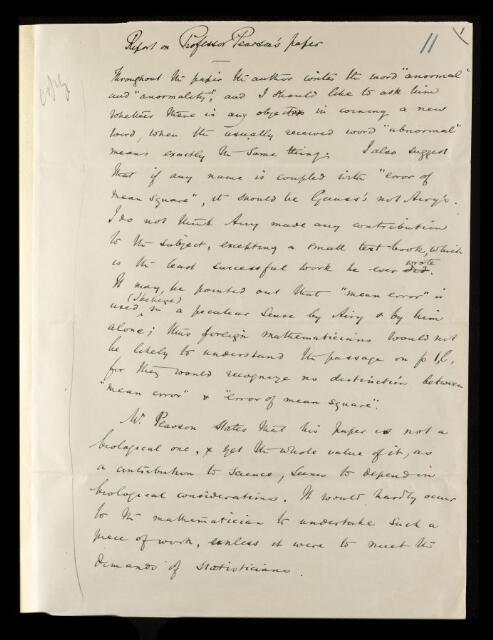 Report on Professor Pearson's paper
11
1
copy
Throughout the paper the author writes the word "anormal"
and "anormality", and I should like to ask him
whether there is any object in coining a new
word, when the usually received word "abnormal"
means exactly the same thing. I also suggest
that if any name is coupled with "error of
mean square", it should be Gauss's not Airy's.
I do not think Airy made any contribution
to the subject, excepting a small text-book, which
is the least successful work he ever did. wrote
It may be pointed out that "mean error" is
used, (I believe) in a peculiar sense by Airy & by him
alone; thus foreign mathematicians would not
be likely to understand the passage on p
for they would recognize no distinction between
"mean error" & "error of mean square".
Mr Pearson states that his paper is not a
biological one, & yet the whole value of it, as
a contribution to science, seems to depend in
biological considerations. It would hardly occur
to the mathematician to undertake such a
piece of work, unless it were to meet the
demands of statisticians.